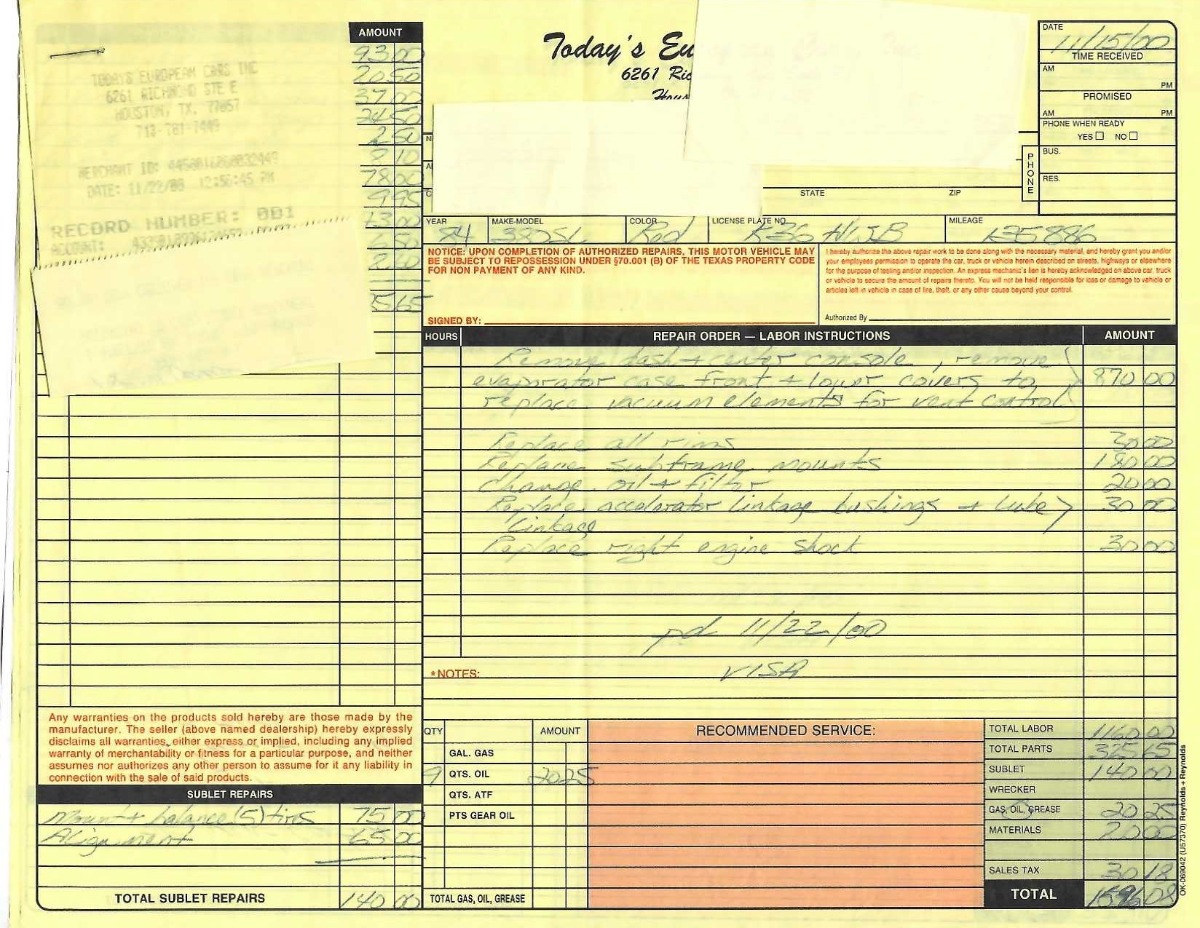 AMOUNT
93 00
20 50
37 00
24 50
2 50
8 10
78 00
9 95
TODAY'S EUROPEAN CARS INC
6261 RICHMOND STE E
HOUSTON, TX. 77057
713-781-7449
MERCHANT ID:
DATE: 11/22/00 12:56:45 PM
RECORD NUMBER: 001
ACCOUNT:
Today's Eu
6261 Ric
Hous
DATE
11/15/00
TIME RECEIVED
AM PM
PROMISED
AM PM
PHONE WHEN READY
YES NO
PHONE
BUS.
RES.
STATE ZIP
YEAR MAKE-MODEL COLOR LICENSE PLATE NO. MILEAGE
84 380SL Red
NOTICE: UPON COMPLETION OF AUTHORIZED REPAIRS, THIS MOTOR VEHICLE MAY
BE SUBJECT TO REPOSSESSION UNDER §70.001 (B) OF THE TEXAS PROPERTY CODE
FOR NON PAYMENT OF ANY KIND.
SIGNED BY:
I hereby authorize the above repair work to be done along with the necessary material, and hereby grant you and/or
your employees permission to operate the car, truck or vehicle herein described on streets, highways or elsewhere
for the purpose of testing and/or inspection. An express mechanic's lien is hereby acknowledged on above car, truck
or vehicle to secure the amount of repairs thereto. You will not be held responsible for loss or damage to vehicle or
articles left in vehicle in case of fire, theft, or any other cause beyond your control.
Authorized By
HOURS REPAIR ORDER — LABOR INSTRUCTIONS AMOUNT
Remove dash + center console, remove
evaporator case front + lower covers to 870 00
replace vacuum elements for vent control
Replace all rims 30 00
Replace subframe mounts 180 00
Change oil + filter 20 00
Replace accelerator linkage bushings + lube 30 00
linkage
Replace right engine shock 30 00
pd 11/22/00
*NOTES: VISA
Any warranties on the products sold hereby are those made by the
manufacturer. The seller (above named dealership) hereby expressly
disclaims all warranties, either express or implied, including any implied
warranty of merchantability or fitness for a particular purpose, and neither
assumes nor authorizes any other person to assume for it any liability in
connection with the sale of said products.
SUBLET REPAIRS
Mount + balance (5) tires 75 00
Alignment 65 00
TOTAL SUBLET REPAIRS 140 00
QTY AMOUNT
GAL. GAS
9 QTS. OIL 20 25
QTS. ATF
PTS GEAR OIL
TOTAL GAS, OIL, GREASE
RECOMMENDED SERVICE:
TOTAL LABOR 1160 00
TOTAL PARTS 325 65
SUBLET 140 00
WRECKER
GAS, OIL, GREASE 20 25
MATERIALS 20 00
SALES TAX 30 18
TOTAL 1696 08
OK-069042 (U57370) Reynolds + Reynolds